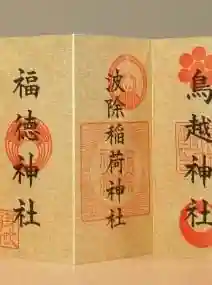 鳥越神社
波除稲荷神社
福徳神社